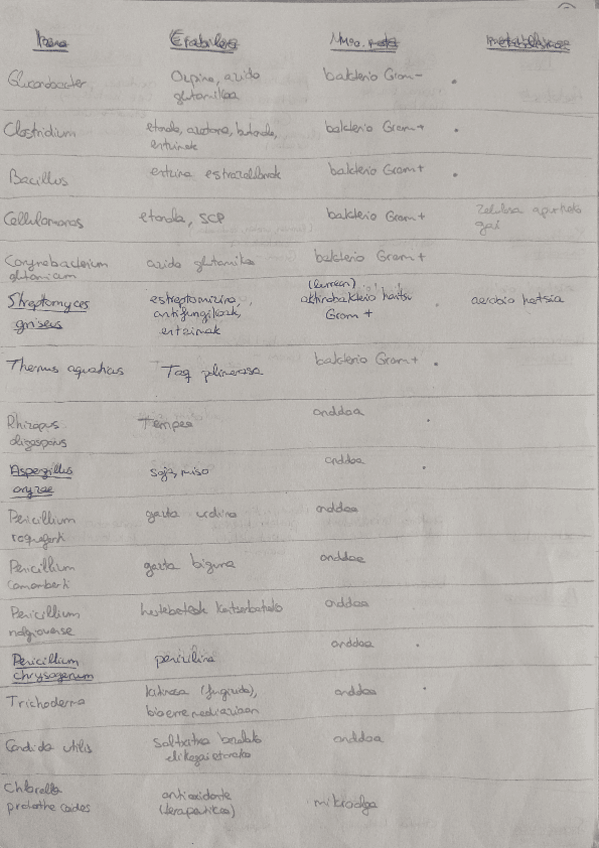 Izena Erabilera Mikro. mota metabolismoa
Gluconobacter, Ozpina, azido bakterio Gram-
glutamikoa
Clostridium etanola, azetona, butanola, bakterio Gram+
entzimak
Bacillus entzima estrazelularrak bakterio Gram+
Cellulomonas etanola, SCP bakterio Gram+ Zelulosa apurtzeko
gai
Corynebacterium azido glutamiko bakterio Gram+
glutamicum
Streptomyces estreptomizina, aktinobakterio haritsu aerobio hertsia
griseus antifungikoak, Gram +
entzimak
Thermus aquaticus Taq polimerasa bakterio Gram+
Rhizopus Tempea onddoa
oligosporus
Aspergillus soja, miso onddoa
oryzae
Penicillium gazta urdina onddoa
roqueforti
Penicillium gazta biguna onddoa
camemberti
Penicillium hestebeteak onddoa
nalgiovense
Penicillium penizilina onddoa
chrysogenum
Trichoderma (fungizida), onddoa
bioerremediazioan
Candida utilis onddoa
elikagaietarako
Chlorella antioxidante mikroalga
protothecoides (terapeutikoa)